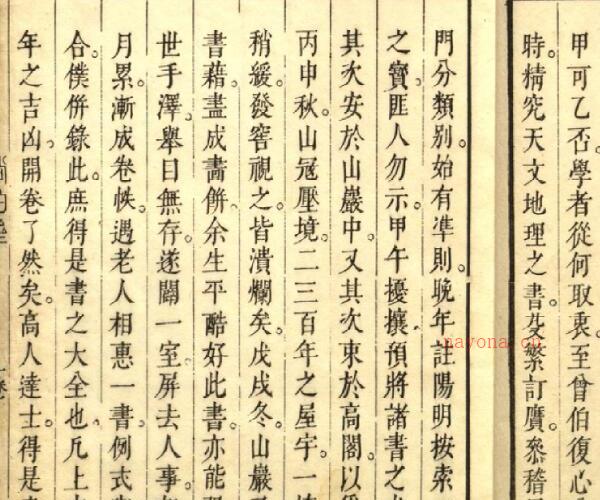 甲可乙否。學者從何取衷。至曾伯復心
時。精究天文地理之書。芟繁訂廣。叅稽
門分類别。始有準則。晚年註陽明按索
之寳。匪人勿示。甲午擾攘。預將諸書之
其次安於山巖中。又其次束於高閣。以
丙申秋。山冠壓境。二三百年之屋宇。一
稍緩。發窖視之。皆潰爛矣。戊戌冬。山巖
書藉。盡成燼。併余生平酷好此書。亦能
世手澤。舉目無存。遂闢一室。屏去人事。
月累。漸成卷帙。遇老人相惠一書。例式
合。僕併錄此。庶得是書之大全也。凡上
年之吉凶。開卷了然矣。高人達士。得是
nayona.cn